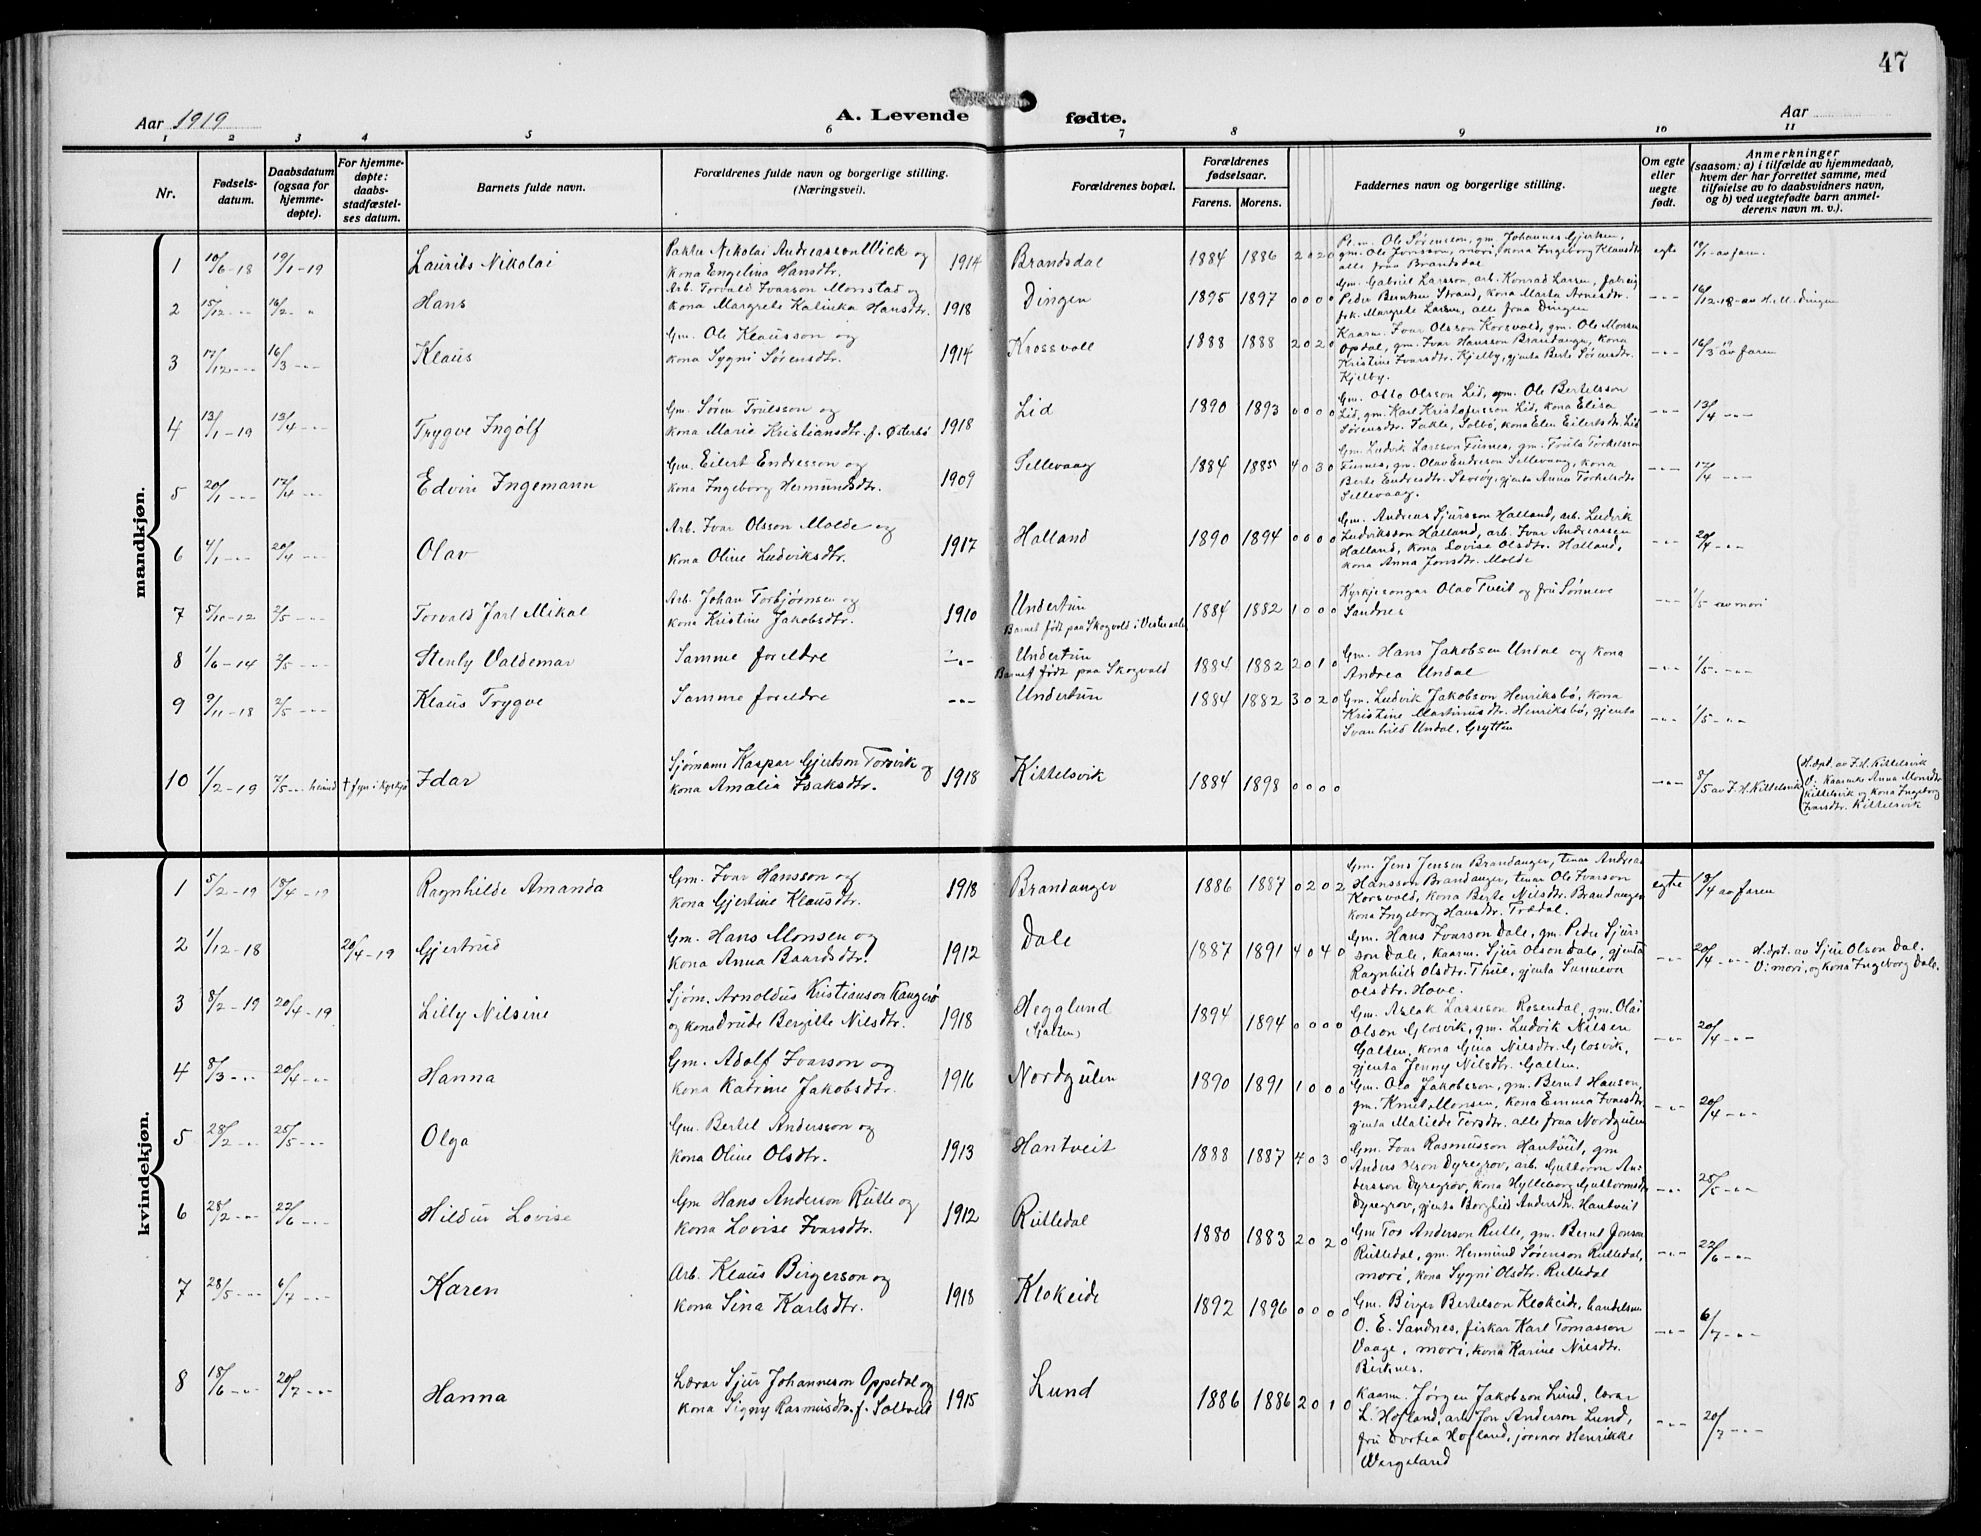 47
Aar 1919
A. Levende fødte.
Aar
1 2 3 4 5 6 7 8 9 10 11
Nr.
Fødsels-
datum.
Daabsdatum
(ogsaa for
hjemme-
døpte).
For hjemme-
døpte:
daabs-
stadfæstel-
ses datum.
Barnets fulde navn.
Forældrenes fulde navn og borgerlige stilling.
(Næringsvei).
Forældrenes bopæl.
Forældrenes
fødselsaar.
Farens. Morens.
Faddernes navn og borgerlige stilling.
Om egte
eller
uegte
født.
Anmerkninger
(saasom: a) i tilfælde av hjemmedaab,
hvem der har forrettet samme, med
tilføielse av to daabsvidners navn,
og b) ved uegtefødte barn anmel-
derens navn m. v.).
mandkjøn.
1 10/6-18 19/1-19 Laurits Nikolai
Paktar Nikolai Andreasson Wick og
kona Engelina Hansdtr. 1914
Brandsdal 1884 1886 2 0 2 0
Pr.m. Ole Sørensson, gm. Johannes Gjertsen,
gm. Ole Iversson, mori, kona Ingeborg Klausdtr.
alle fraa Brandsdal
egte 19/1 av faren.
2 15/12 -"- 16/2 - " Hans
Arb. Torvald Ivarson Monstad og
kona Margrete Kalinka Hansdtr. 1918
Dingen 1895 1897 0 0 0 0
Gm. Gabriel Larsson, arb. Konrad Larsen,
Peder Berntsen Strand, kona Marta Arnesdtr.
frk. Margrete Larsen, alle fraa Dingen
-"- 16/12-18 - av H. M. Dingen
3 17/12 -"- 16/3 -"- Klaus
Gm. Ole Klausson og
kona Sygni Sørensdtr. 1914
Krossvoll 1888 1888 2 0 2 0
Kaarm. Ivar Olsson Korsvold, gm. Ole Monsen
Opdal, gm. Ivar Hansson Brandanger, kona
Kristine Ivarsdtr. Kjelby, gjenta Berte Sørensdtr.
Kjelby.
-"- 16/3 av faren
4 13/1-19 13/4 -"- Trygve Ingolf
Gm. Søren Trulsson og
kona Marie Kristiansdtr. f. Østerbø 1918
Lid 1890 1893 0 0 0 0
Gm. Otto Olsson Lid, gm. Ole Bertelsson
Lid, gm. Karl Kristofersson Lid, kona Elisa
Sørensdtr. Takle, Solbø, kona Elen Eilertsdtr. Lid
-"- 13/4 -"-
5 20/1 -"- 17/4 -"- Edvin Ingemann
Gm. Eilert Endresson og
kona Ingeborg Hermundsdtr. 1909
Sellevaag 1884 1885 4 0 3 0
Gm. Ludvik Larsson Furnes, gm. Truls Torkelsson
Furnes, gm. Olav Endreson Sellevaag, kona
Berte Endresdtr. Storøy, gjenta Anna Torkelsdtr.
Sellevaag.
-"- 17/4 -"-
6 4/1 -"- 20/4 -"- Olav
Arb. Ivar Olsson Molde og
kona Oline Ludviksdtr. 1917
Halland 1890 1894 0 0 0 0
Gm. Andreas Sjursson Halland, arb. Ludvik
Ludviksson Halland, arb. Ivar Andreassen
Halland, kona Lovise Olsdtr. Halland,
kona Anna Jonsdtr. Molde
-"- 20/4 -"-
7 5/10-12 2/5 -"- Torvald Jarl Mikal
Arb. Johan Torbjørnsen og
kona Kristine Jakobsdtr. 1910
Undertun
Barnet født paa Skogvold i Vesteraalen
1884 1882 1 0 0 0
Kyrkjesongar Olav Tveit og fru Sønneve
Sandnes
-"- 1/5 av mori
8 1/6-14 2/5 -"- Stenly Valdemar
Samme foreldre -"-
Undertun
Barnet født paa Skogvald
1884 1882 2 0 1 0
Gm. Hans Jakobsen Undal og kona
Andrea Undal
-"- 1/5 -"-
9 9/11-18 2/5 -"- Klaus Trygve
Samme foreldre -"-
Undertun 1884 1882 3 0 2 0
Gm. Ludvik Jakobson Henriksbø, kona
Kristine Martinusdtr. Henriksbø, gjenta
Svanhild Undal, Grytten
-"- 1/5 -"-
10 1/2-19 7/5 -"- heimd † fyr i kyrkja Idar
Sjømann Kaspar Gjertson Torsvik og
kona Amalia Isaksdtr. 1918
Kittelsvik 1884 1898 0 0 0 0
-"- 8/5 av I. H. Kittelsvik
H.dpt. av I. H. Kittelsvik
V: Kaarenke Anna Monsdtr
Kittelsvik og kona Ingeborg
Ivarsdtr. Kittelsvik
kvindekjøn.
1 5/2-19 13/4-19 Ragnhilde Amanda
Gm. Ivar Hansson og
kona Gjertine Klausdtr. 1918
Brandanger 1886 1887 0 2 0 2
Gm. Jens Jensen Brandanger, tenar Andreas
Hansson Brandanger, tenar Ole Ivarson
Korsvold, kona Berte Nilsdtr. Brandanger
kona Ingeborg Hansdtr. Trædal.
egte 13/4 av faren
2 1/12-18 20/4-19 Gjertrud
Gm. Hans Monsen og
kona Anna Baardsdtr. 1912
Dale 1887 1891 4 0 4 0
Gm. Hans Ivarson Dale, gm. Peder Sjur-
son Dale, Kaarm. Sjur Olson Dale, gjenta
Ragnhild Olsdtr. Thue, gjenta Sunneva
Olsdtr. Hove.
-"- 20/4 -"- H.dpt. av Sjur Olson Dal.
V: mori, og kona Ingeborg Dale.
3 8/2-19 20/4-19 Lilly Nilsine
Sjøm. Arnoldus Kristianson Kangerø
og kona Drude Bergitte Nilsdtr. 1918
Hegglund
(Galten)
1894 1894 0 0 0 0
Gm. Aslak Lasseson Rosendal, gm. Olai
Olson Glosvik, gm. Ludvik Nilsen
Galten, kona Gina Nilsdtr. Glosvik,
gjenta Jenny Nilsdtr. Galten.
-"- 20/4 -"-
4 8/3 -"- 20/4 -"- Hanna
Gm. Adolf Ivarson og
kona Katrine Jakobsdtr. 1916
Nordgulen 1890 1891 1 0 0 0
Gm. Ola Jakobsson, gm. Bernt Hanson,
gm. Knut Monsen, kona Emma Ivarsdtr.
gjenta Matilde Torsdtr. alle fraa Nordgulen
-"- 20/4 -"-
5 28/2 -"- 25/5 -"- Olga
Gm. Bertel Andersson og
kona Oline Olsdtr. 1913
Hantveit 1888 1887 4 0 3 0
Gm. Ivar Rasmusson Hantveit, gm
Anders Olson Dyregrov, arb. Guttorm An-
dersson Dyregrov, kona Hylleborg Guttormsdtr.
Dyregrov, gjenta Borghild Andersdtr. Hantveit
-"- 25/5 -"-
6 28/2 -"- 22/6 -"- Hildur Lovise
Gm Hans Anderson Rutle og
kona Lovise Ivarsdtr. 1912
Rutledal 1880 1883 2 0 2 0
Gm Tor Anderson Rutle, gm. Bernt Jonson
Rutledal, gm. Hermund Sørenson Rutledal,
mori, kona Sygni Olsdtr. Rutledal
-"- 22/6 -"-
7 28/5 -"- 6/7 -"- Karen
Arb. Klaus Birgerson og
kona Sina Karlsdtr. 1918
Klokeide 1892 1896 0 0 0 0
Gm. Birger Bertelson Klokeide, handelsm
O. E. Sandnes, fiskar Karl Tomasson
Vaage, mori, kona Karine Nilsdtr.
Birknes.
-"- 6/7 -"-
8 18/6 -"- 20/7 -"- Hanna
Lærar Sjur Johanneson Oppedal og
kona Signy Rasmusdtr. f. Soltveit 1915
Lund 1886 1886 2 0 1 0
Kaarm. Jørgen Jakobson Lund, lærar
L. Hofland, arb. Jon Anderson Lund,
fru Dortea Hofland, jormor Henrikke
Wergeland
-"- 20/7 -"-